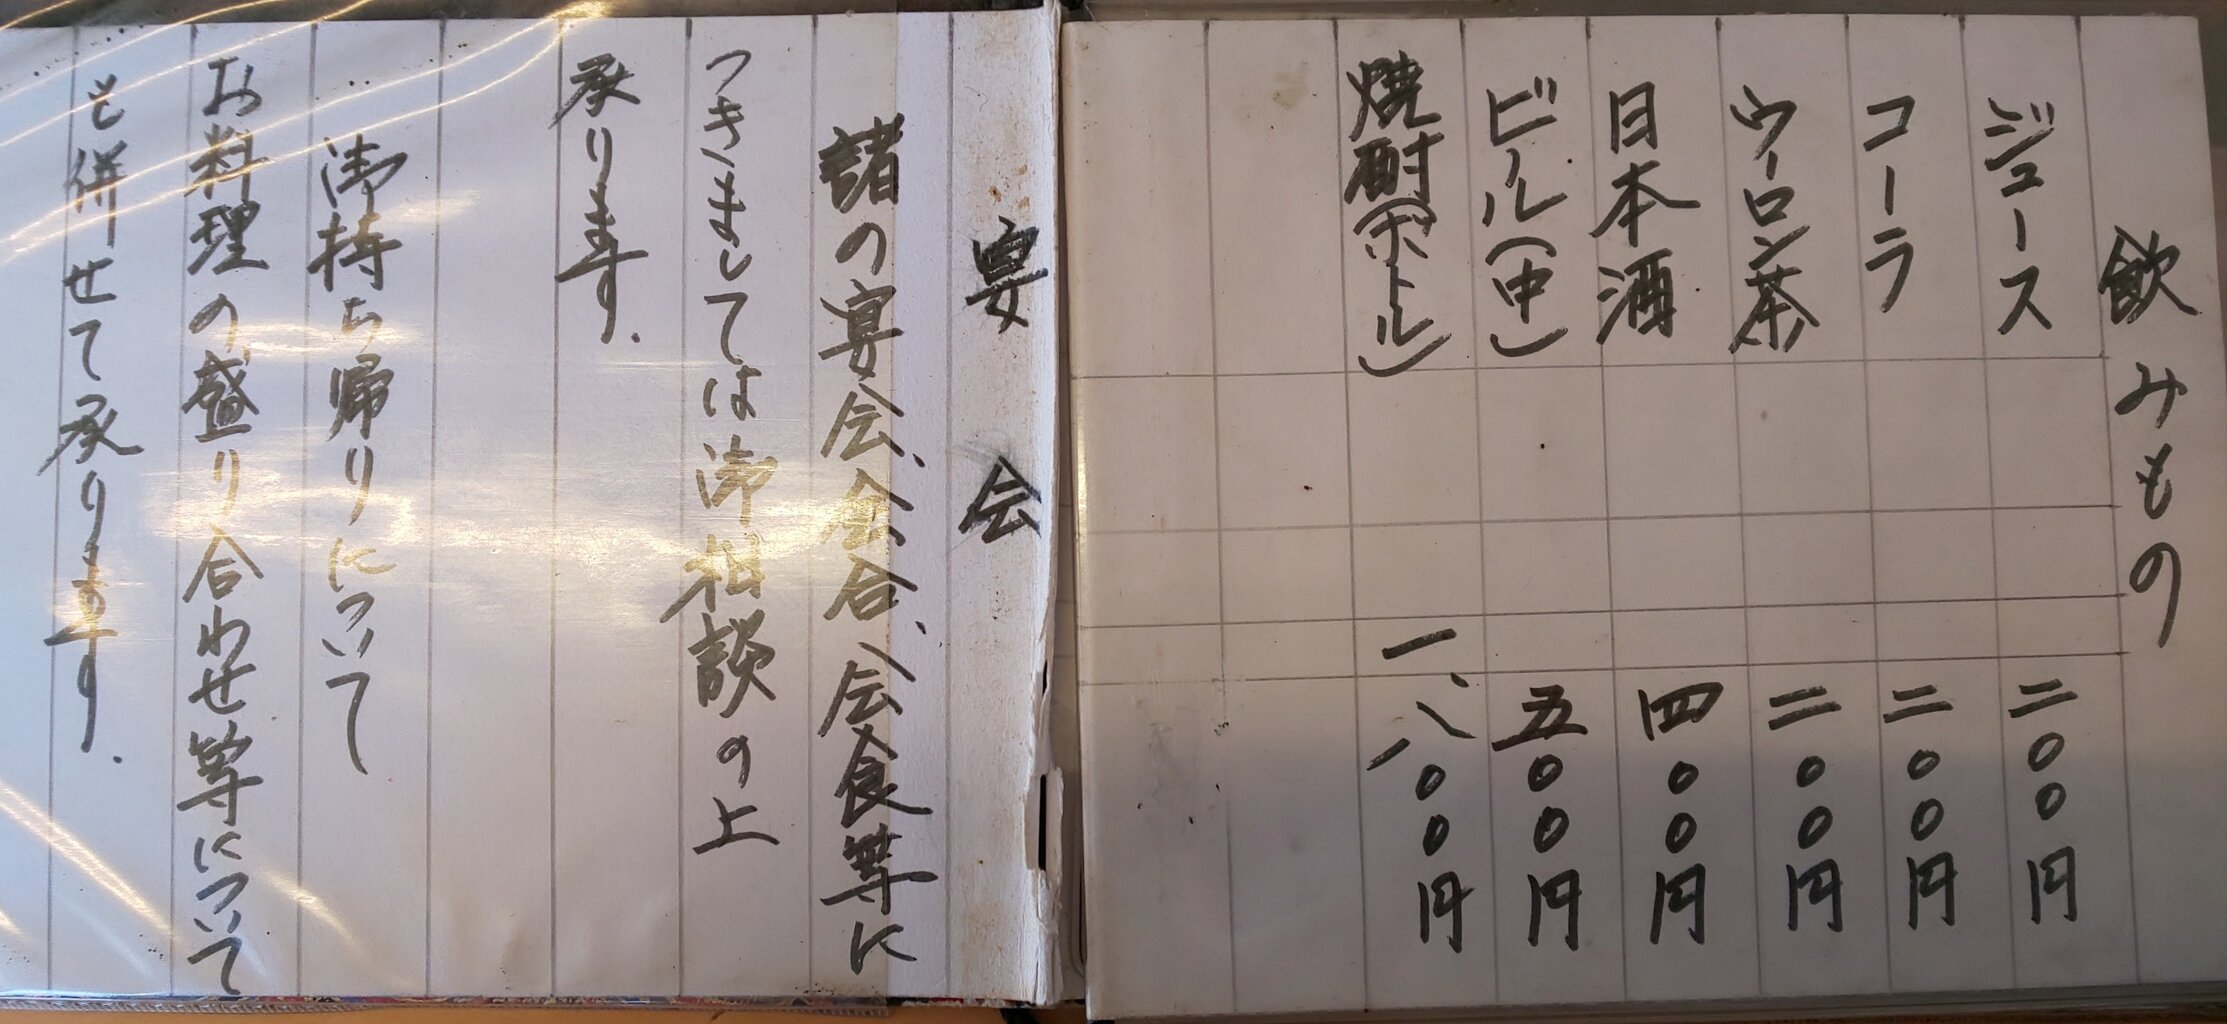 飲みもの
ジュース 二〇〇円
コーラ 二〇〇円
ウーロン茶 二〇〇円
日本酒 四〇〇円
ビール(中) 五〇〇円
焼酎(ボトル) 一、八〇〇円
宴会
諸の宴会、会合、会食等に
つきましては御相談の上
承ります.
御持ち帰りについて
お料理の盛り合わせ等について
も併せて承ります.